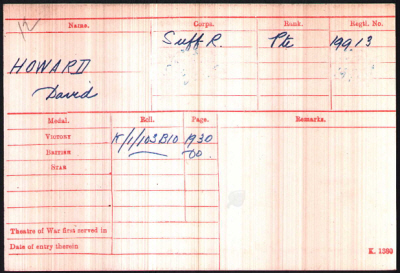 Name. Corps. Rank. Regtl. No.
HOWARD Suff R. Pte 19913
David
Medal. Roll. Page. Remarks.
VICTORY K/1/103B10 1930
BRITISH do.
STAR
Theatre of War first served in
Date of entry therein
K. 1380